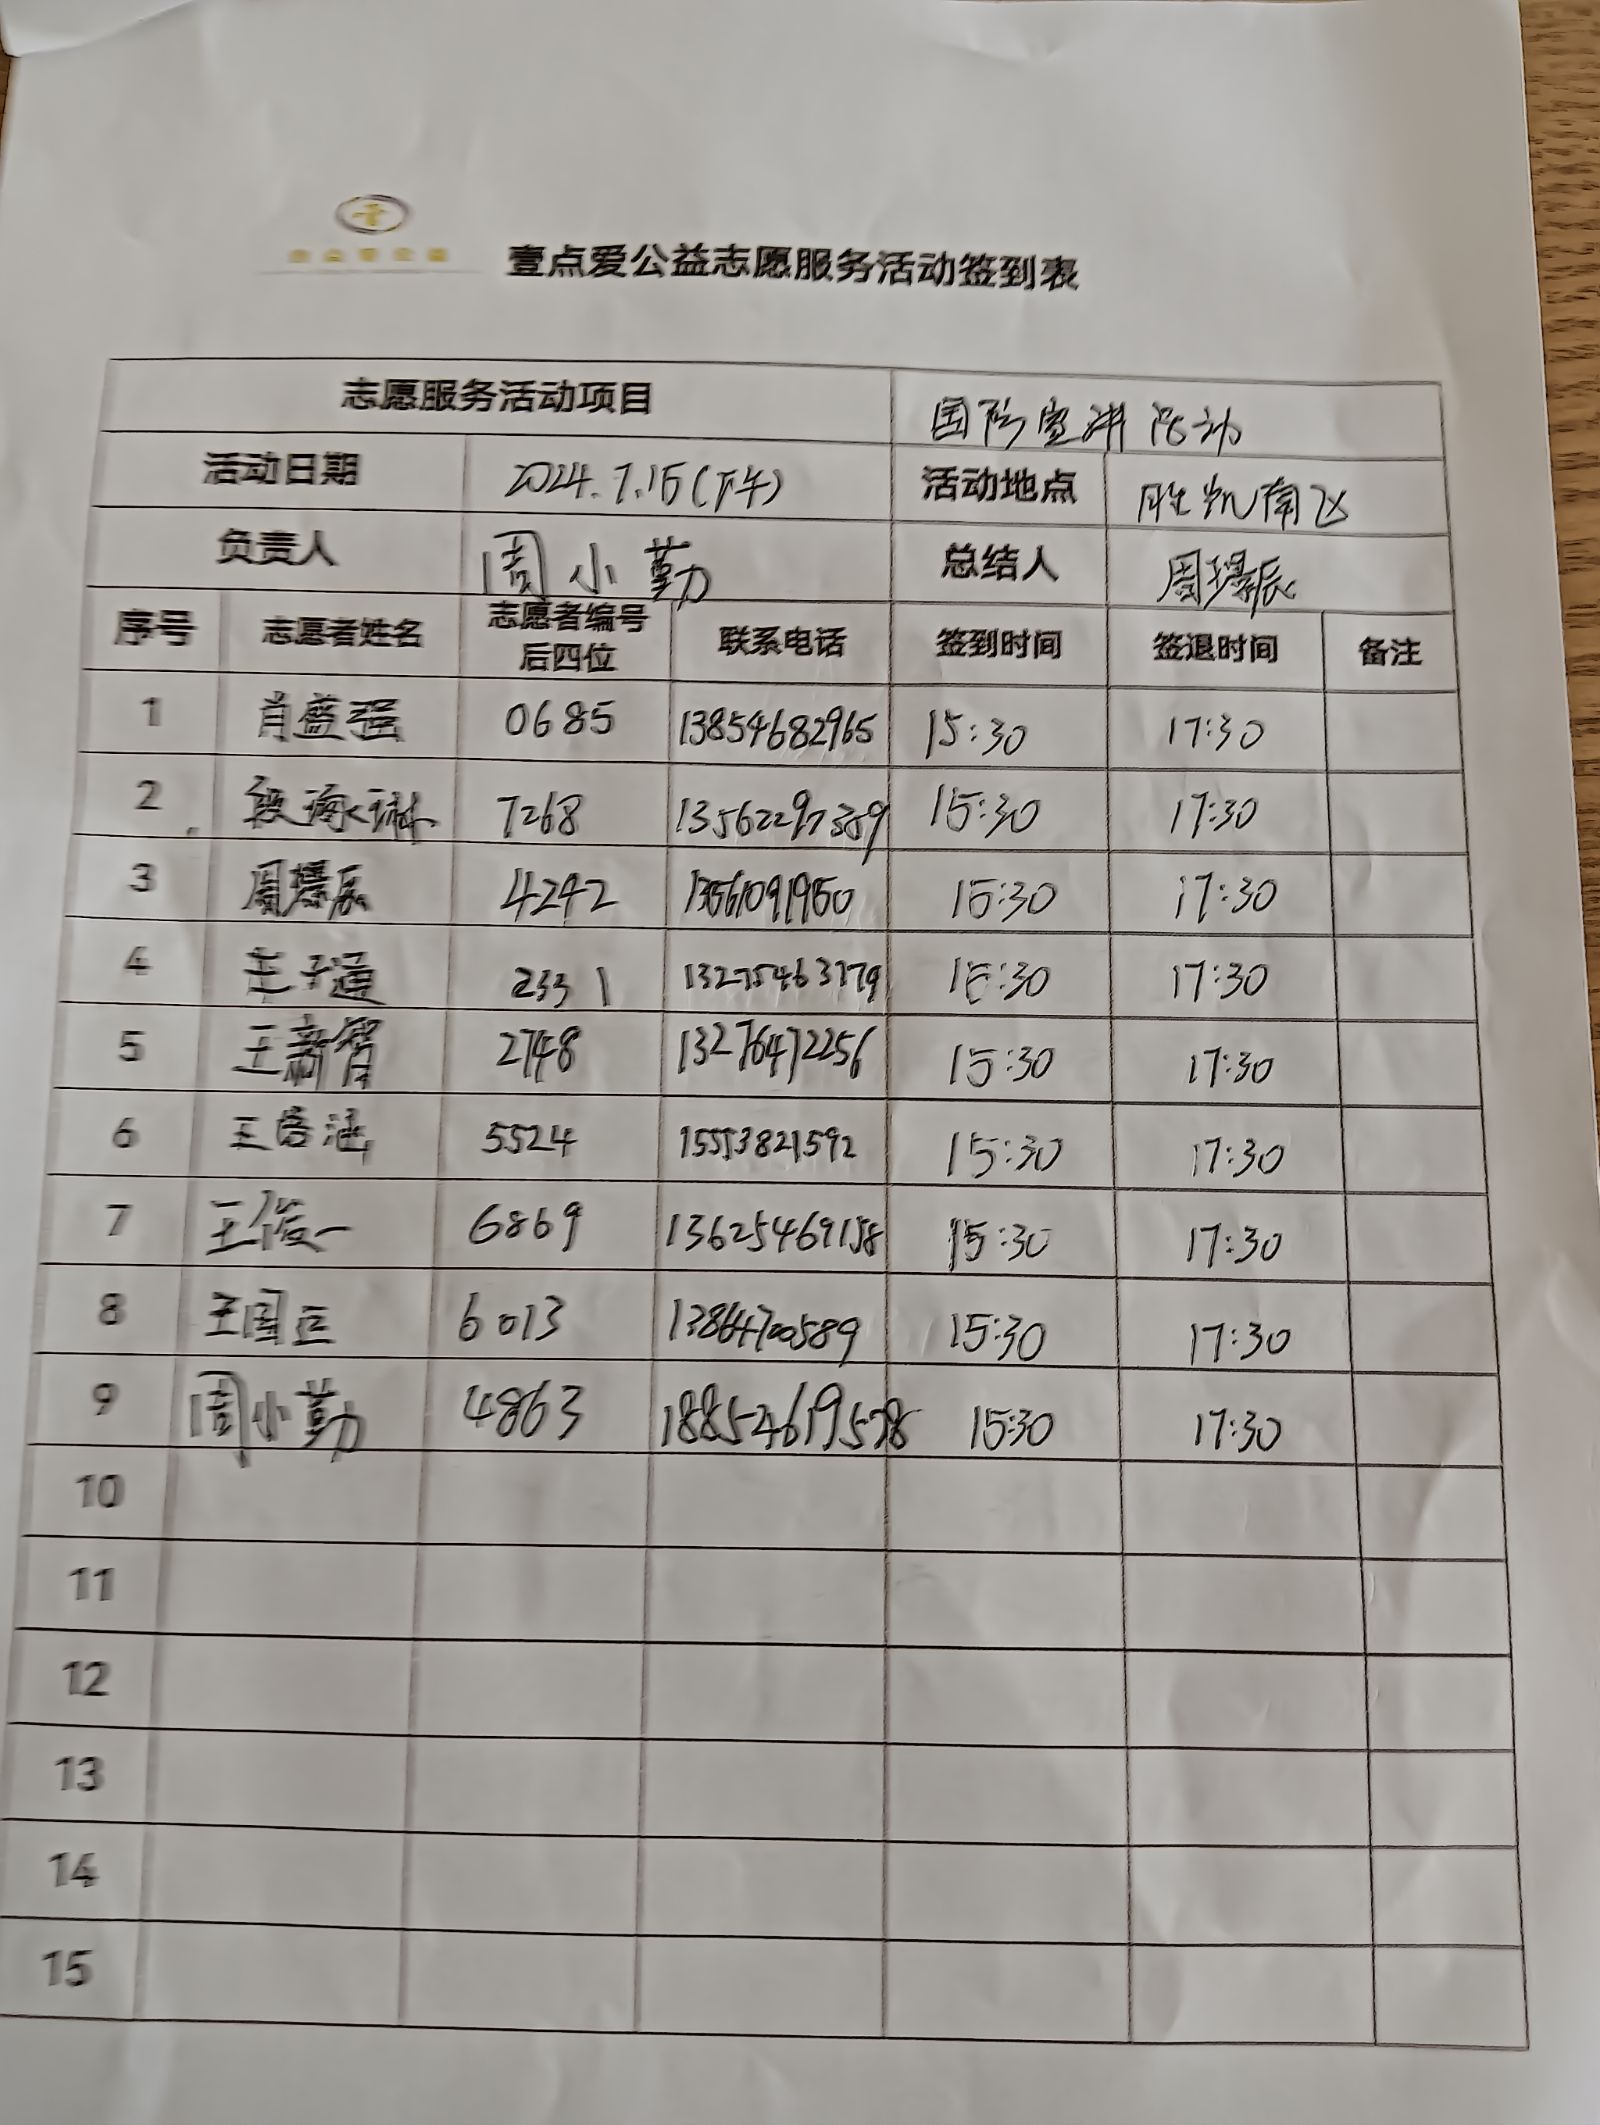 壹点爱公益志愿服务活动签到表
志愿服务活动项目 国防宣讲活动
活动日期 2024.7.15(下午) 活动地点 胜凯南区
负责人 周小勤 总结人
序号 志愿者姓名 志愿者编号后四位 联系电话 签到时间 签退时间 备注
1 肖盛强 0685 13854682965 15:30 17:30
2 7268 13562297389 15:30 17:30
3 4242 13561091950 15:30 17:30
4 2331 13275463779 15:30 17:30
5 王新智 2748 13276472256 15:30 17:30
6 5524 15553821592 15:30 17:30
7 王俊一 6869 13625469158 15:30 17:30
8 王国巨 6013 13864700589 15:30 17:30
9 周小勤 4863 18854619578 15:30 17:30
10
11
12
13
14
15